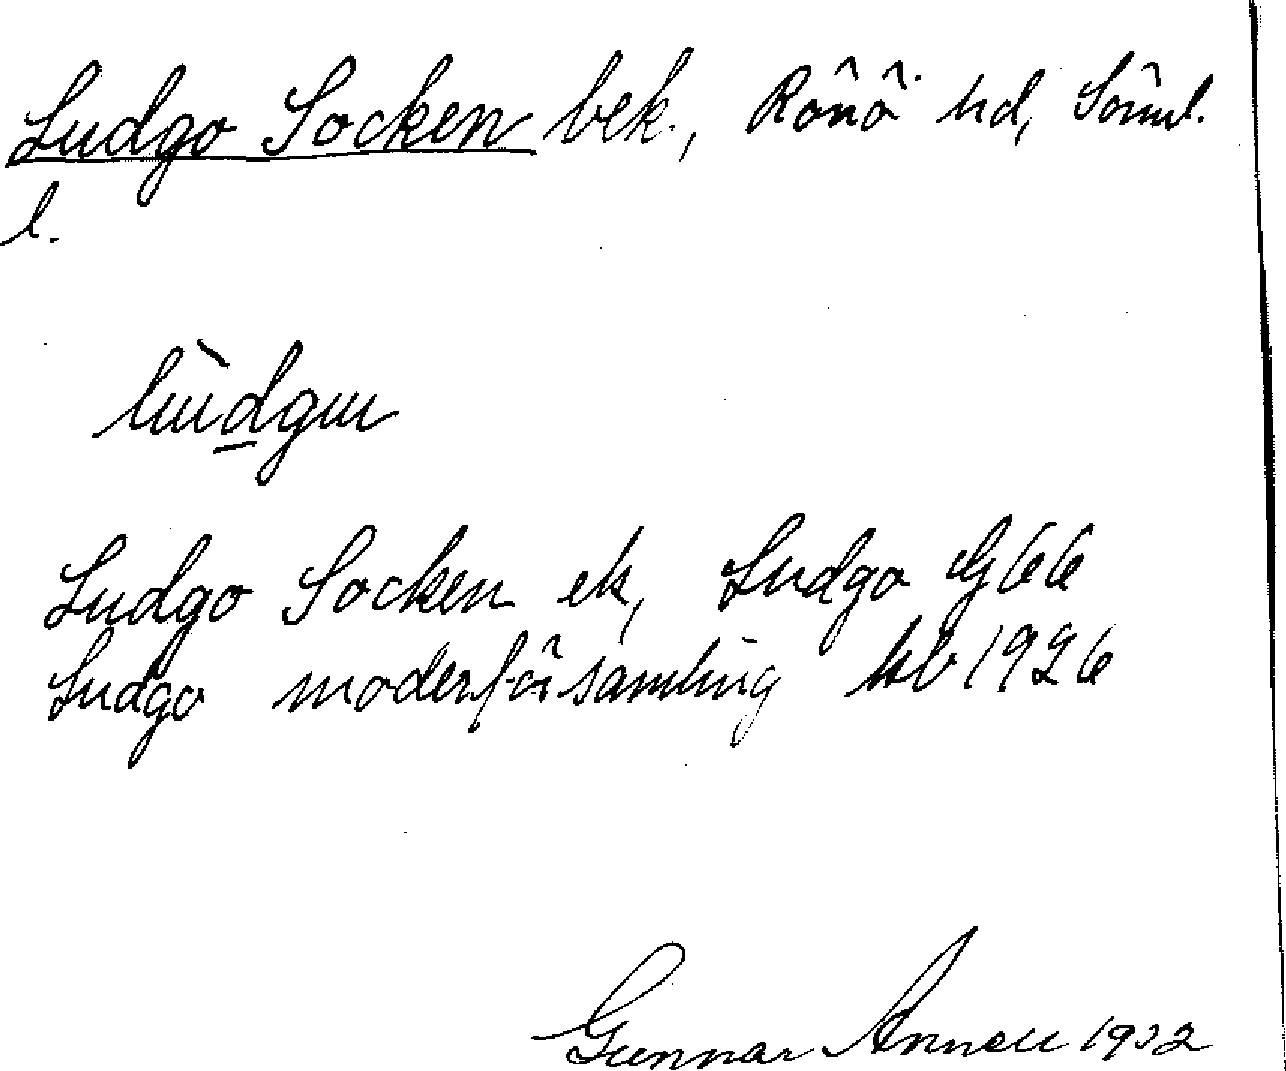 Ludgo Socken bek., Rönö hd, Söml.
l.
lùdgu
Ludgo Socken ek, Ludgo G 66
Ludgo moderförsamling kb 1926
Gunnar Annell 1932